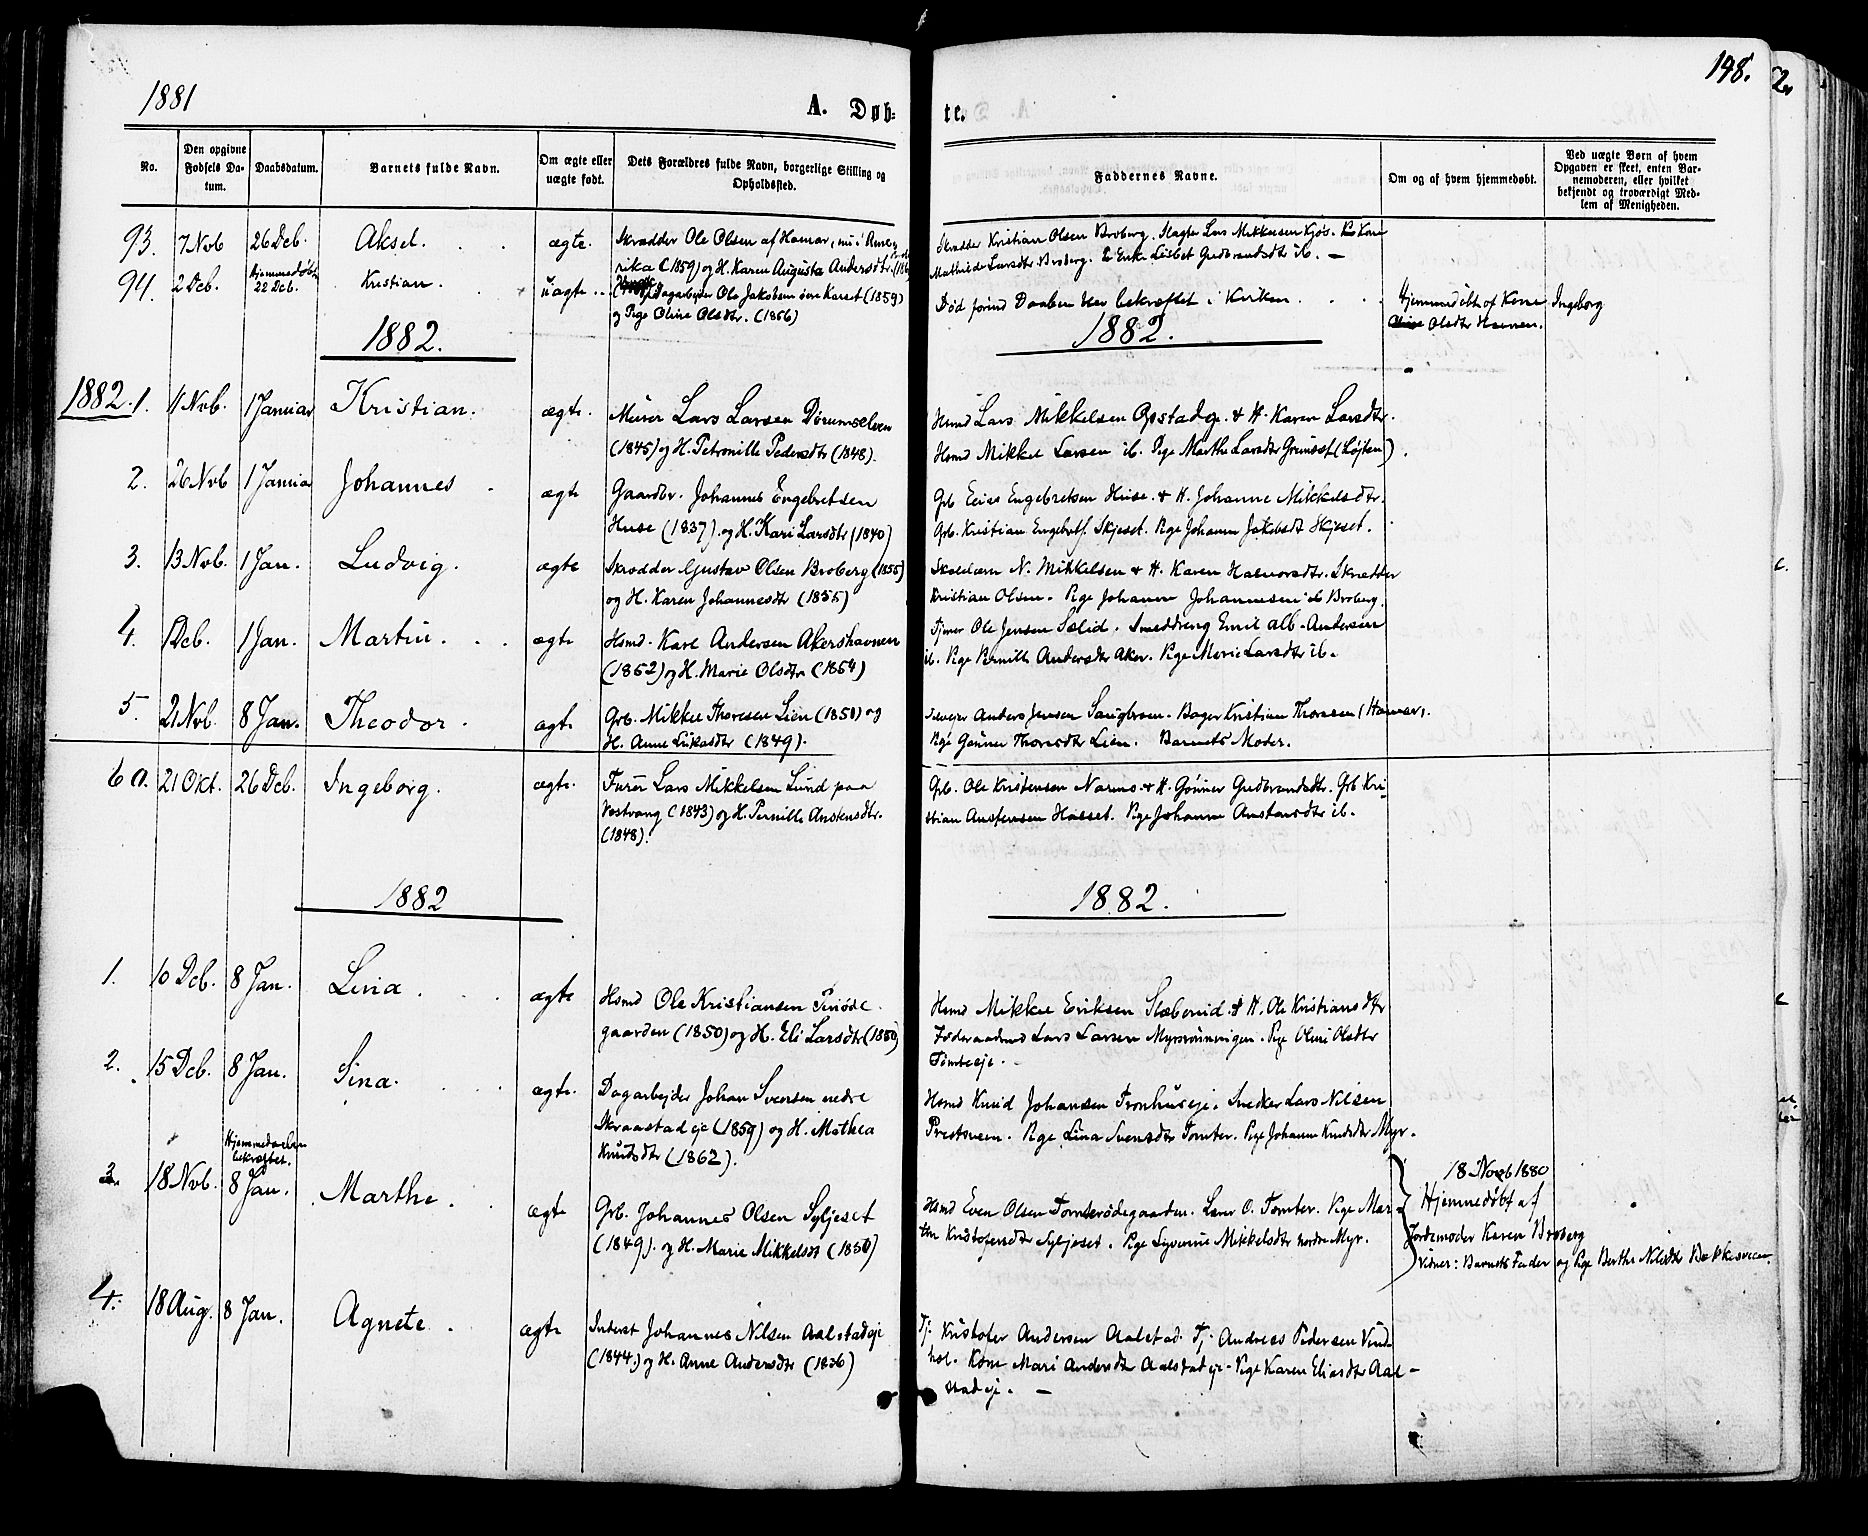 1881
A. Døb=
te.
198.
No.
Den opgivne Fødsels Da-tum.
Daabsdatum.
Barnets fulde Navn.
Om ægte eller uægte født.
Dets Forældres fulde Navn, borgerlige Stilling og Opholdssted.
Faddernes Navne.
Om og af hvem hjemmedøbt.
Ved uægte Børn af hvem Opgaven er skeet, enten Bar-nemoderen, eller hvilket bekjendt og troværdigt Med-lem af Menigheden.
93. 7 Nov 26 Dcb. Aksel. ægte. Skrædder Ole Olsen af Hamar, nu i Ame-
rika (1859) og H. Karen Augusta Andersdtr.
Skrædder Kristian Olsen Broberg. Slagter Lars Mikkelsen Kjøs. Kone
Mathilde Larsdtr Broberg. Enke Lisbet Gudbrandsdtr ib. —
94. 2 Dcb. Hjemmedøbt 22 Dcb. Kristian. uægte Dagarbejder Ole Jakobsen (1859)
og Pige Oline Olsdtr. (1856)
Død forind Daaben blev bekræftet i Kirken.
Hjemmedøbt af Kone
Olsdtr
Ingeborg
1882.
1882.
1882. 1. 11 Nvb. 1 Januar Kristian. ægte. Murer Lars Larsen
(1845) og H. Petronille Pedersdtr (1848).
Hsmd Lars Mikkelsen Opstadeje. & H. Karen Larsdtr.
Hsmd Mikkel Larsen ib. Pige Marthe Larsdtr Grimset (Løjten).
2. 26 Nvb 1 Januar Johannes ægte Gaardbr. Johannes Engebretsen
Huse (1837). og H. Kari Larsdtr (1840)
Grb. Engebretsen Huse. & H. Johanne Mikkelsdtr.
Grb. Kristian Engebrets. Skjeset. Pige Johanne Jakobsdt Skjeset.
3. 13 Nvb. 1 Jan. Ludvig. ægte Skrædder Gustav Olsen Broberg (1855)
og H. Karen Johannesdtr (1855)
N. Mikkelsen & H. Karen Halvorsdtr. Skrædder
Kristian Olsen. Pige Johanne Johannesen ib Broberg.
4. 1 Dcb. 1 Jan. Martin. ægte Hsmd. Karl Andersen Akershavnen
(1852) og H. Marie Olsdtr (1854)
Tjener Ole Jensen Sælid. Smeddreng Emil Alb. Andersen
ib. Pige Pernille Andersdtr Aker. Pige Marie Larsdtr ib.
5. 21 Nvb. 8 Jan. Theodor. ægte Grb. Mikkel Thoresen Lien (1850) og
H. Anne Lukasdtr (1849).
Anders Jensen Bager Kristian Thoresen (Hamar).
Pige Gunner Thoresdtr Lien. Barnets Moder.
6 a. 21 Okt. 26 Dcb. Ingeborg. ægte. Furer Lars Mikkelsen Lund paa
Vestvang (1843) og H. Pernille Anstensdtr.
(1848).
Grb. Ole Kristensen Narmo. & H. Gunner Gudbrandsdtr. Grb Kri-
stian Anstensen Hasset. Pige Johanne Anstensdtr ib.
1882
1882.
1. 10 Dcb. 8 Jan. Lina. ægte Hsmd Ole Kristiansen
gaarden (1850) og H. Eli Larsdtr (1850)
Hsmd Mikkel Eriksen & H. Ole Kristiansdtr
Føderaadsmd Lars Larsen Myrsrunningen. Pige Oline Olsdtr
Tomtereje.
2. 15 Dcb. 8 Jan. Sina. ægte. Dagarbejder Johan Svensen nedre
Skraastadeje (1859) og H. Mathea
Knudsdtr (1862).
Hsmd Knud Johansen Tronhuseje. Snedker Lars Nilsen
Prestsveen. Pige Lina Svensdtr Tomter. Pige Johanne Knudsdtr Myr.
3. 18 Nvb. Hjemmedaaben bekræftet. 8 Jan. Marthe. ægte Grb. Johannes Olsen Syljeset
(1849). og H. Marie Mikkelsdt (1850)
Hsmd Even Olsen Tomterødegaarden. Lærer O. Tomter. Pige Mar-
the Kristofersdtr Syljeset. Pige Syverine Mikkelsdtr nordre Myr.
18 Novb 1880
Hjemmedøbt af
Jordemoder Karen Broberg
Vidner: Barnets Fader og Pige Berthe Nilsdtr Bækkesveen.
4. 18 Aug. 8 Jan. Agnete. ægte Inderst Johannes Nilsen Aalstadeje
(1844.) og H. Anne Andersdtr (1836)
Tj. Kristofer Andersen Aalstad. Tj. Andreas Pedersen Vind-
hol. Kone Mari Andersdtr Aalstadeje. Pige Karen Eliasdtr Aal-
stadeje. —